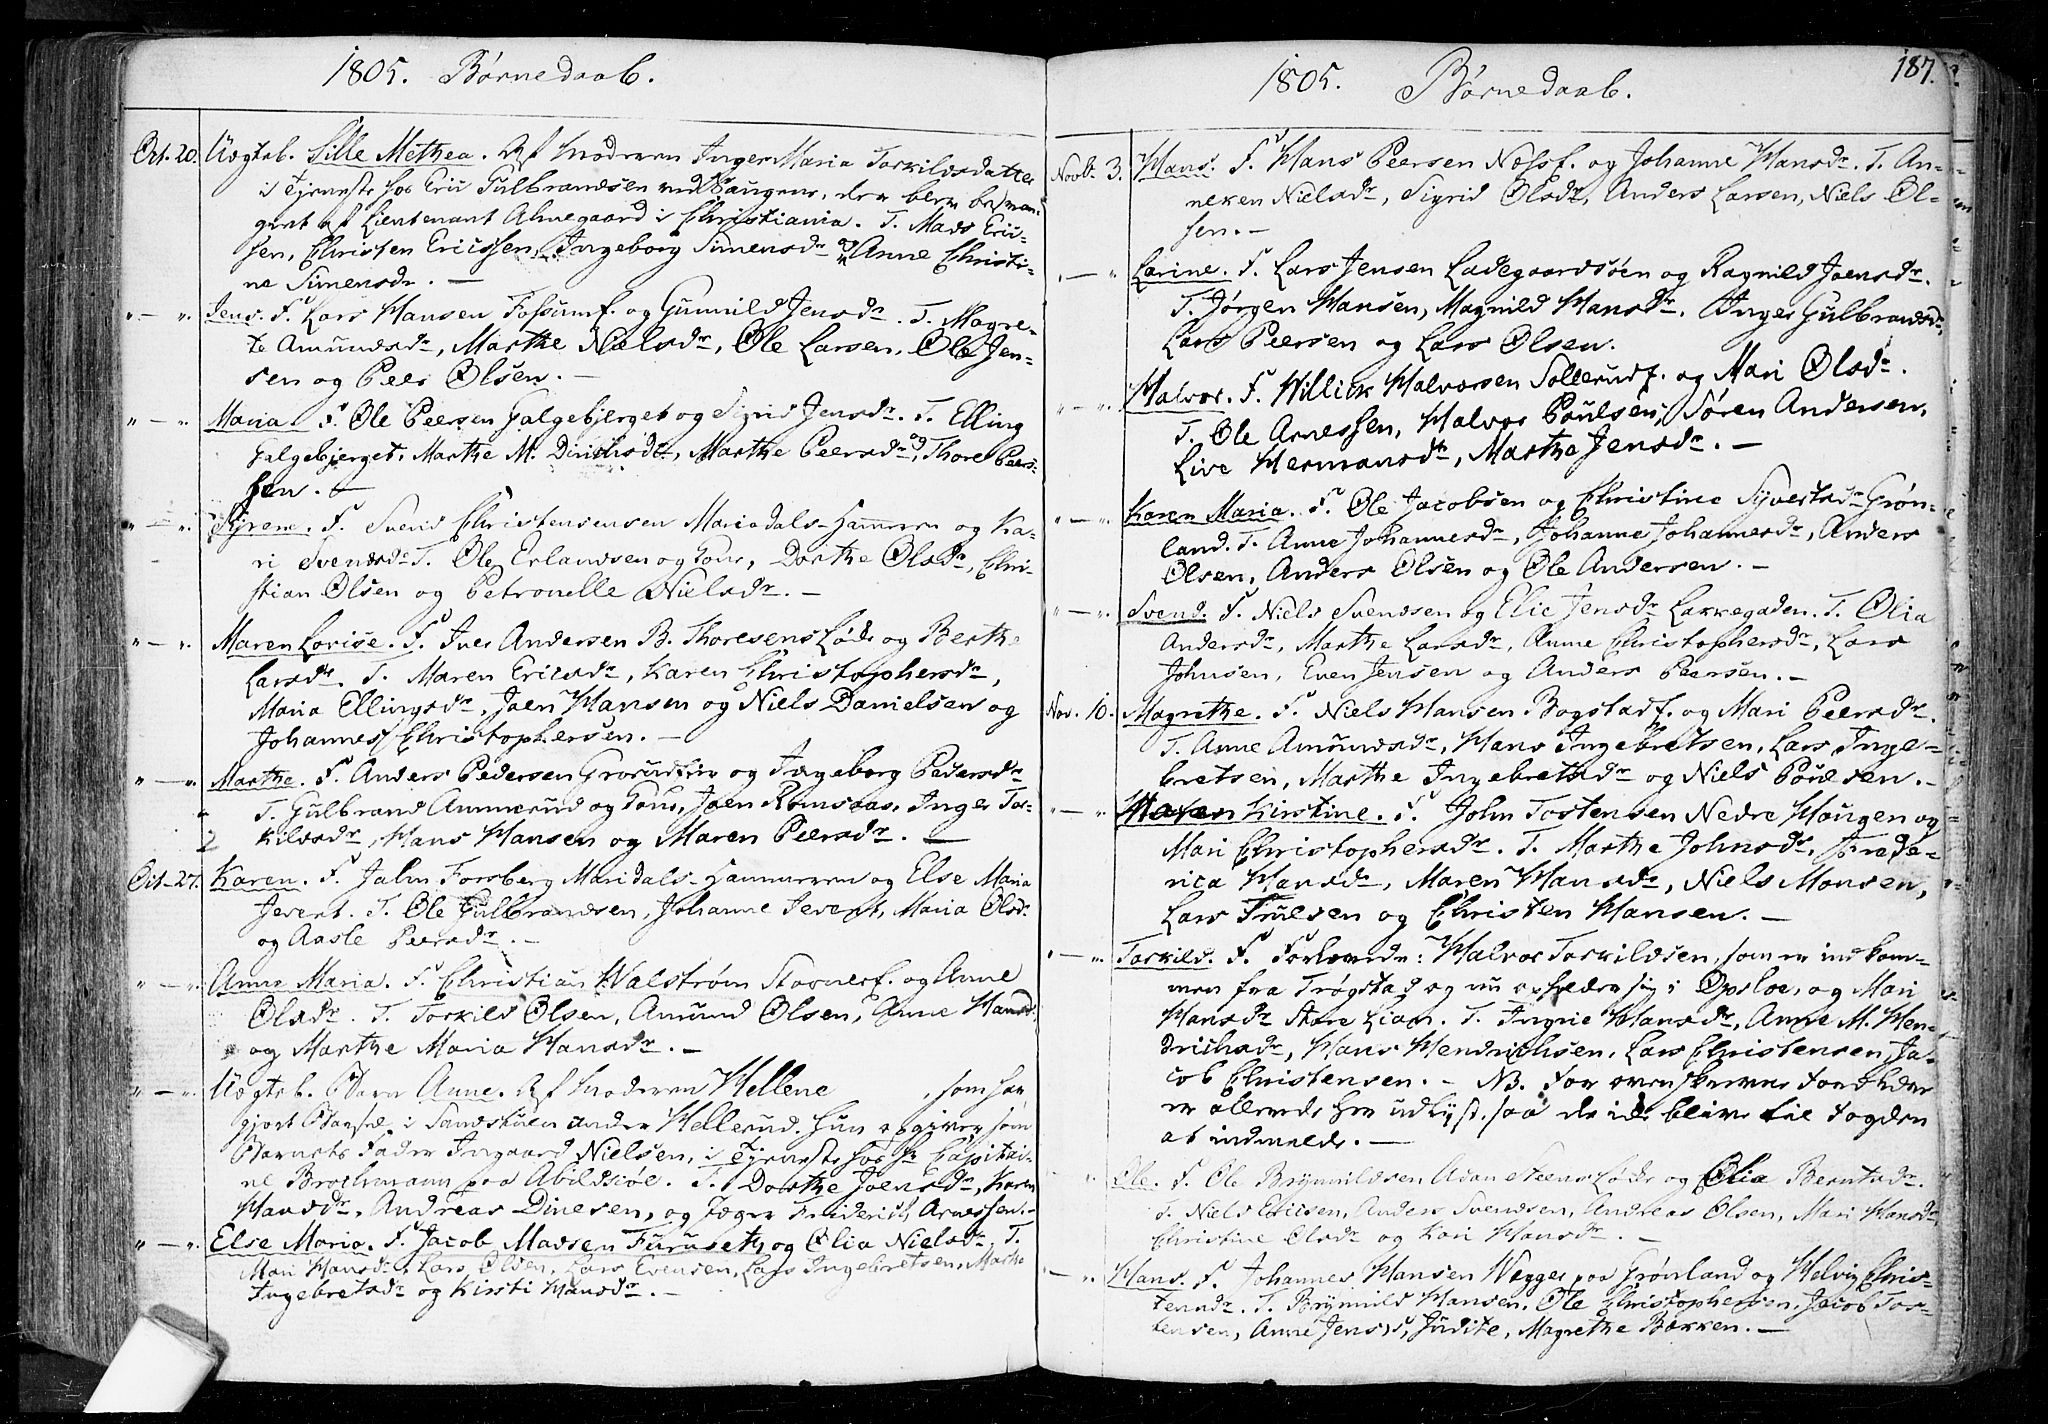 1805. Børnedaab.
Oct. 20. Uægteb. Sille Methea. Af Moderen Inger Maria Torkildsdatter
i Tjeneste hos Eric Gulbrandsen ved Saugene, der blev besvan-
gret af Lieutenant Ahnegaard i Christiania. T. Mads Eric-
sen, Christen Ericssen, Ingeborg Simensdr og Anne Christi-
ne Simensdr. —
" — " Jens. F. Lars Hansen Fossumf. og Gunnild Jensdr. T. Magre-
te Amundsdr, Marthe Nielsdr, Ole Larsen, Ole Jen-
sen og Peer Olsen. —
" — " Maria. F. Ole Peersen Galgebjerget og Sigrid Jensdr. T. Elling
Galgebjerget, Marthe M. Dirichsdr, Marthe Peersdr, og Thore Peer-
sen. —
" — " Syrene. F. Svend Christensensen Mariadals-Hammeren og Ka-
ri Svendsdr T. Ole Erlandsen og Tone, Dorthe Olsdr, Chri-
stian Olsen og Petronelle Nielsdr. —
" — " Maren Lovise. F. Iver Andersen B. Thoresens Løkke og Berthe
Larsdr. T. Maren Ericsdr, Karen Christophersdr,
Maria Ellingsdr, Joen Hansen og Niels Danielsen og
Johannes Christophersen. —
" — " Marthe. F. Anders Pedersen Grorudeie og Ingeborg Pedersdr
T. Gulbrand Ammerud og Kone, Joen Romsaas, Inger Tor-
kildsdr, Hans Hansen og Maren Peersdr. —
Oct. 27. Karen. F. John Forsberg Maridals-Hammeren og Else Maria
Jevert. T. Ole Gulbrandsen, Johanne Jevert, Maria Olsdr
og Aasle Peersdr. —
" — " Anne Maria. F. Christian Walstrøm Stovnerf. og Anne
Olsdr. T. Torkild Olsen, Amund Olsen, Anne Hansdr
og Marthe Maria Hansdr. —
" — " Uægteb. Barn Anne. Af Moderen Hellene , som har
gjort Barsel i Sandstuen under Hellerud. Hun opgiver som
Barnets Fader Ingaard Nielsen, i Tjeneste hos Hr Capitai-
ne Brochmann paa Abildsøe. T. Dorthe Joensdr, Karen
Hansdr, Andreas Dinesen, og Jæger Friderich Arnessen. —
" — " Else Maria. F. Jacob Madsen Furuseth og Olia Nielsdr. T.
Mari Hansdr, Lars Olsen, Lars Evensen, Lars Ingebretsen, Marthe
Ingebretsdr og Kirsti Hansdr. —
1805. Børnedaab. 187.
Novb. 3. Hans. F. Hans Peersen Nøssf. og Johanne Hansdr. T. An-
neken Nielsdr, Sigrid Olsdr, Anders Larsen, Niels Ol-
sen. —
" — " Larine. F. Lars Jensen Ladegaardsøen og Ragnild Joensdr.
T. Jørgen Hansen, Magnild Hansdr, Inger Gulbrandsdr,
Lars Peersen og Lars Olsen.
" — " Halvor. F. Willick Halvorsen Sollerudf. og Mari Olsdr.
T. Ole Arnessen, Halvor Poulsen, Søren Andersen,
Live Hermansdr, Marthe Jensdr. —
" — " Karen Maria. F. Ole Jacobsen og Christine Syvertsdr Grøn-
land. T. Anne Johannesdr, Johanne Johannesdr, Anders
Olsen, Anders Olsen og Ole Andersen. —
" — " Svend. F. Niels Svendsen og Elie Jensdr Lakkegaden. T. Olia
Andersdr, Marthe Larsdr, Anne Christophersdr, Lars
Johnsen, Even Jensen og Anders Peersen. —
Nov. 10. Magrethe. F. Niels Hansen Bogstadf. og Mari Peersdr.
T. Anne Amundsdr, Hans Ingebretsen, Lars Inge-
bretsen, Marthe Ingebretsdr og Niels Poulsen. —
" — " Maren Kirstine. F. John Tostensen Nedre Hougen og
Mari Christophersdr. T. Marthe Johnsdr, Frede-
rica Hansdr, Maren Hansdr, Niels Monsen,
Lars Trulsen og Christen Hansen. —
" — " Torkild. F. Forlovede: Halvor Torkildsen, som er indkom-
men fra Trøgstad og nu opholder sig i Opsloe, og Mari
Hansdr Store Lian. T. Ingrie Hansdr, Anne M. Hen-
drichsdr, Hans Hendrichsen, Lars Christensen, Ja-
cob Christensen. — NB. For ovenskrevne Forældre
er allerede her udlyst, saa de ikke blive til Fogden
at indmelde. —
" Ole. F. Ole Brynnildsen Adan Steens Løkke og Olia Berntsdr.
T. Niels Ericsen, Anders Svendsen, Andreas Olsen, Mari Hansdr,
Christine Olsdr og Kari Hansdr. —
— " Hans. F. Johannes Hansen Wegger paa Grønland og Helvig Chris-
tensdr. T. Brynnild Hansen, Ole Christophersen, Jacob Tor-
tensen, Anne Jensdr, Judite, Magrethe Bakken. —